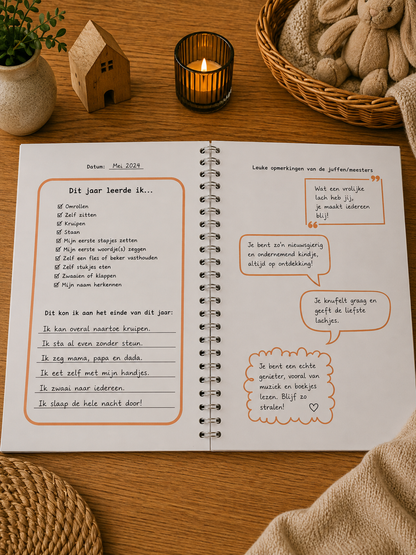 Datum: Mei 2024
Dit jaar leerde ik...
Omrollen
Zelf zitten
Kruipen
Staan
Mijn eerste stapjes zetten
Mijn eerste woordje(s) zeggen
Zelf een fles of beker vasthouden
Zelf stukjes eten
Zwaaien of klappen
Mijn naam herkennen
Dit kon ik aan het einde van dit jaar:
Ik kan overal naartoe kruipen.
Ik sta al even zonder steun.
Ik zeg mama, papa en dada.
Ik eet zelf met mijn handjes.
Ik zwaai naar iedereen.
Ik slaap de hele nacht door!
Leuke opmerkingen van de juffen/meesters
Wat een vrolijke
lach heb jij,
je maakt iedereen
blij!
Je bent zo'n nieuwsgierig
en ondernemend kindje,
altijd op ontdekking!
Je knufelt graag en
geeft de liefste
lachjes.
Je bent een echte
genieter, vooral van
muziek en boekjes
lezen. Blijf zo
stralen!